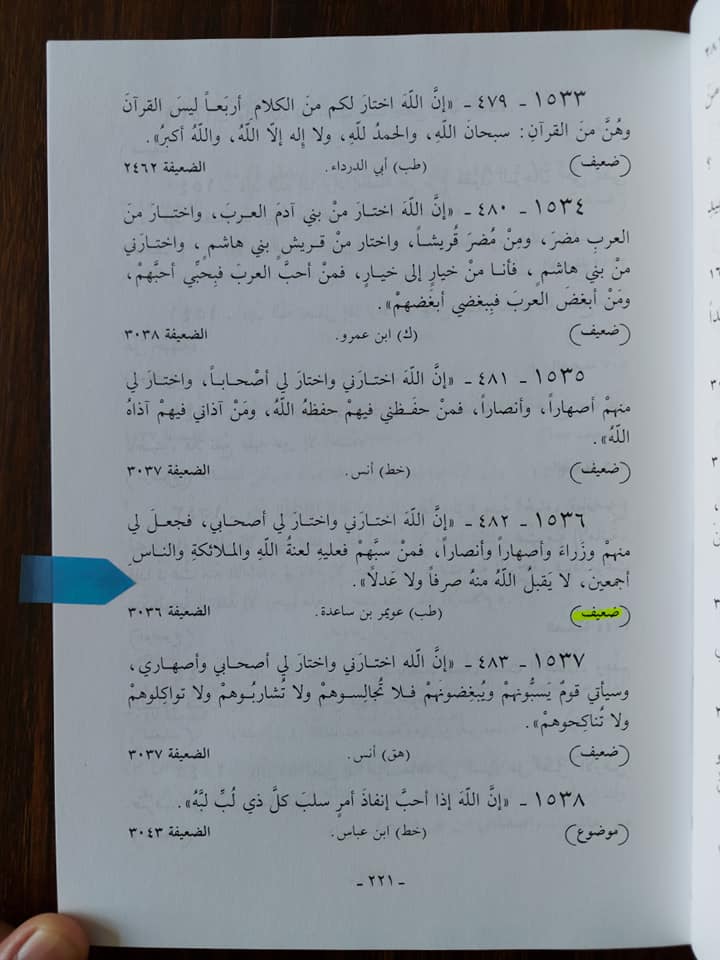 ١٥٣٣ - ٤٧٩ - «إنَّ اللّهَ اختارَ لكم منَ الكلامِ أربَعـاً ليسَ القرآنَ
وهُنَّ منَ القرآنِ: سبحانَ اللّهِ، والحمدُ للّهِ، ولا إله إلّا اللّهُ، واللّهُ أكبرُ».
(ضعيف) (طب) أبي الدرداء. الضعيفة ٢٤٦٢
١٥٣٤ - ٤٨٠ - «إنَّ اللّهَ اختارَ منْ بني آدمَ العـربَ، واختـارَ منَ
العربِ مضرَ، ومِنْ مُضرَ قُريشـاً، واختار منْ قـريشٍ بني هاشمٍ، واختارَني
منْ بني هاشمٍ، فأنـا منْ خيارٍ إلى خيـارٍ، فمنْ أحبَّ العربَ فبِحبِّي أحبَّهمْ،
ومَنْ أبغضَ العربَ فبِبغضي أبغَضهمْ».
(ضعيف) (ك) ابن عمرو. الضعيفة ٣٠٣٨
١٥٣٥ - ٤٨١ - «إنَّ اللّهَ اختـارَني واختارَ لي أصْحـابـاً، واختـارَ لي
منهمْ أصهاراً، وأنصاراً، فمنْ حفَـظني فيهمْ حفظهُ اللّهُ، ومَنْ آذاني فيهمْ آذاهُ
اللّهُ».
(ضعيف) (خط) أنس. الضعيفة ٣٠٣٧
١٥٣٦ - ٤٨٢ - «إنَّ اللّهَ اختارَني واختـارَ لي أصحابي، فجعـلَ لي
منهمْ وزَراءَ وأصهاراً وأنصاراً، فمنْ سبَّهمْ فعليهِ لعنةُ اللّهِ والملائكةِ والناسِ
أجمعينَ، لا يَقبلُ اللّهُ منهُ صرفاً ولا عَدلاً».
(ضعيف) (طب) عويمر بن ساعدة. الضعيفة ٣٠٣٦
١٥٣٧ - ٤٨٣ - «إنَّ اللّه اختـارَني واختارَ لي أصحابي وأصهاري،
وسيأتي قومٌ يَسبُّونهمْ ويُبغِضونَهمْ فـلا تُجالِسـوهمْ ولا تُشاربُـوهمْ ولا تواكِلوهمْ
ولا تُناكِحوهمْ».
(ضعيف) (هق) أنس. الضعيفة ٣٠٣٧
١٥٣٨ - «إنَّ اللّهَ إذا أحبَّ إنفاذَ أمرٍ سلبَ كلَّ ذي لُبٍّ لبَّهُ».
(موضوع) (خط) ابن عباس. الضعيفة ٣٠٤٣
- ٢٢١ -